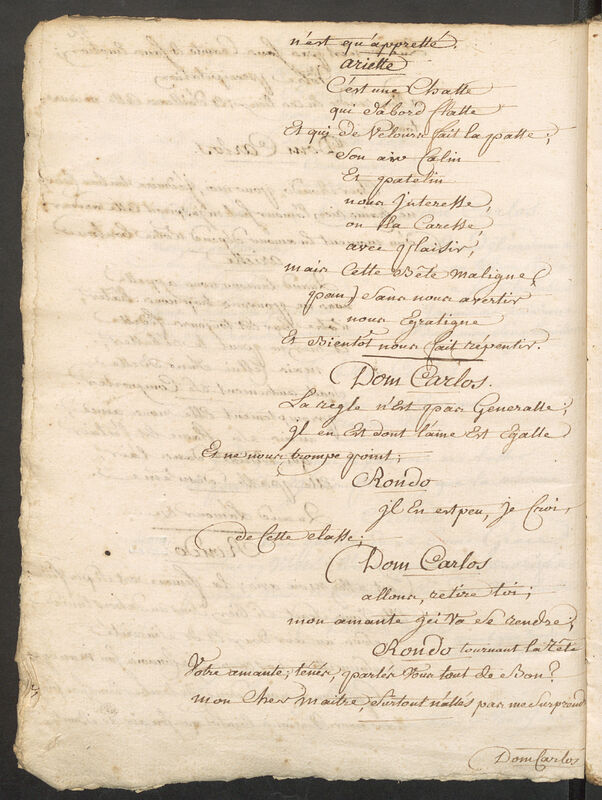 n'est qu'appretté.
ariette
C'est une Chatte
qui d'abord flatte
Et qui de Velours fait la patte;
Son air Calin
Et patelin
nous Jnteresse,
on la Caresse,
avec plaisir,
mais Cette Bête Maligne (
pan) Sans nous avertir
nous Egratigne
Et Bientôt nous fait repentir.
Dom Carlos.
La regle n'Est pas Generalle;
Jl en Est dont l'âme Est Egalle
Et ne nous trompe point;
Rondo
jl En est peu, je Crois,
de Cette classe;
Dom Carlos
allons, retire toi;
mon amante jci Va se rendre,
Rondo tournant la tête
Votre amante; tenés, parlés Vous tout de Bon?
mon Cher Maitre, Surtout n'allés pas me Surprend
Dom Carlos